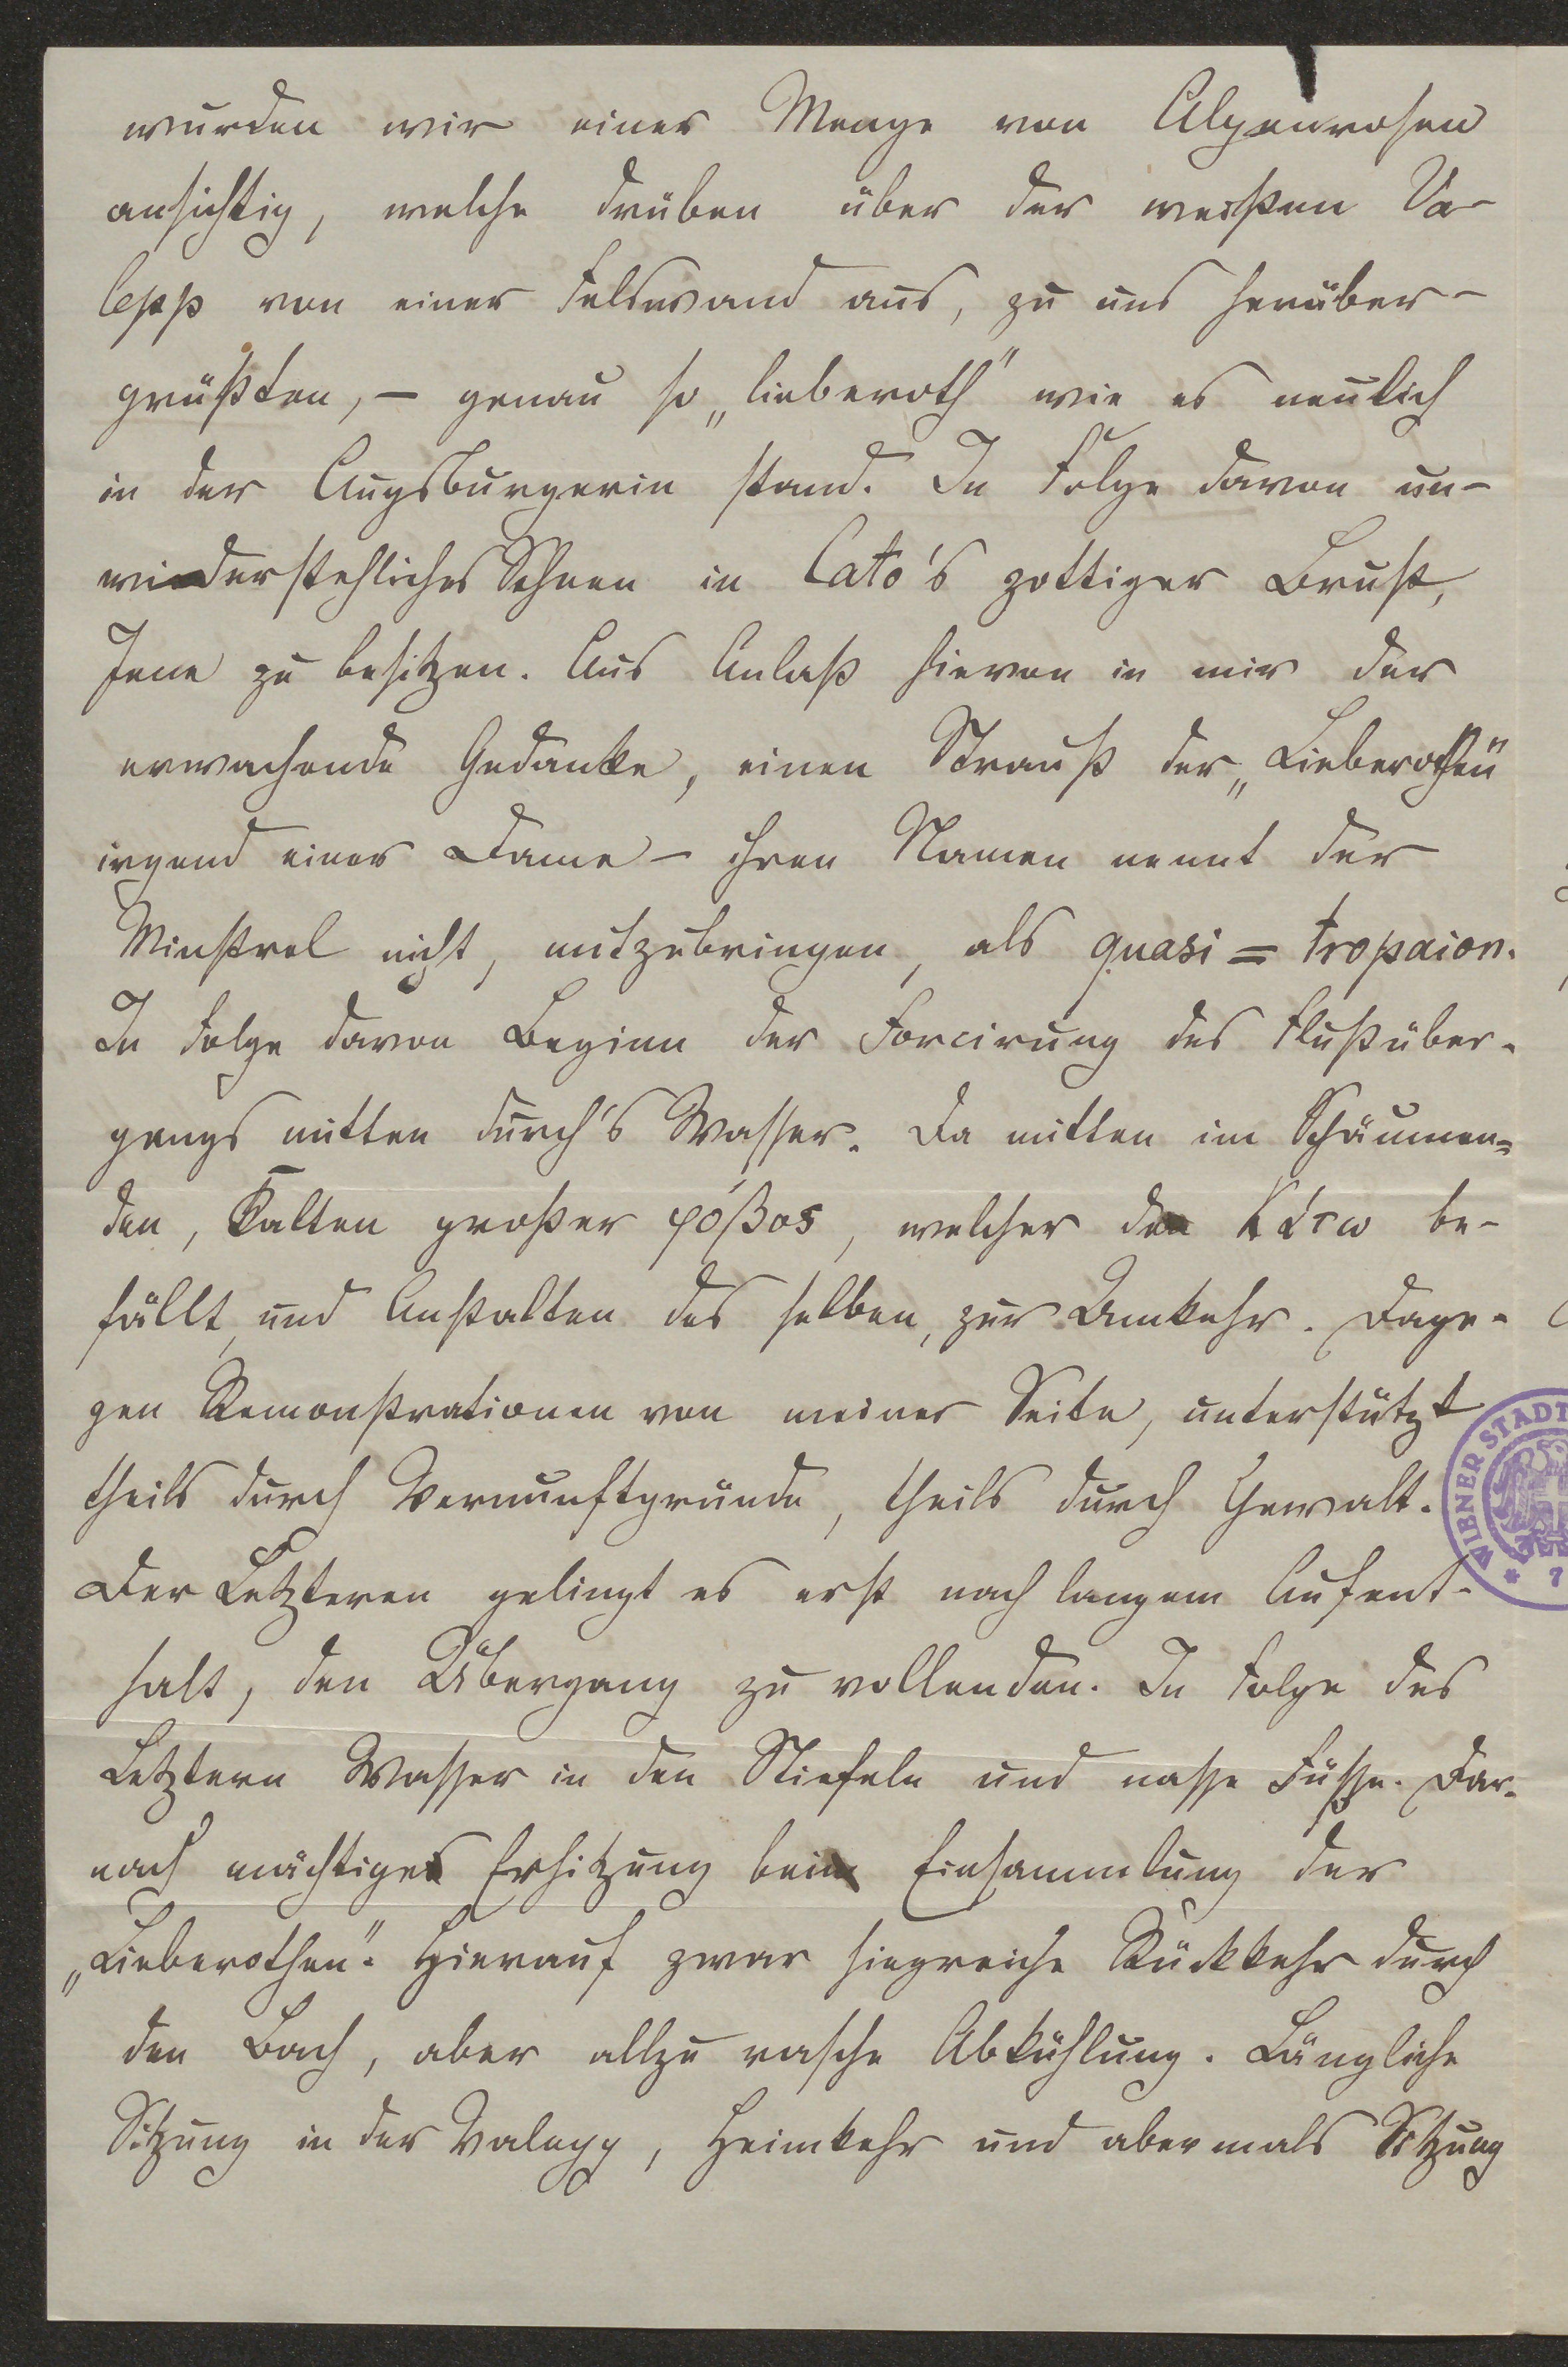 wurden wir einer Menge von Alpenrosen
ansichtig, welche drüben über der weißen Va-
lepp von einer Felswand aus, zu uns herüber-
grüßten, – genau so „lieberoth" wie es neulich
in der Augsburgerin stand. In Folge davon un-
widerstehliches Sehnen in Cato's zottiger Brust,
Jene zu besitzen. Aus Anlaß hievon in mir der
erwachende Gedanke, einen Strauß der „Lieberothen"
irgend einer Dame – ihren Namen nennt der
Minstrel nicht, mitzubringen, als quasi = tropaion.
In Folge davon Beginn der Forcirung des Flußüber-
gangs mitten durch's Wasser. Da mitten im Schäumen-
den, Kalten großer φόβος, welcher den Κάτω be-
fällt, und Anstalten des selben, zur Umkehr. Dage-
gen Remonstrationen von meiner Seite, unterstützt
theils durch Vernunftgründe, theils durch Gewalt.
Der Letzteren gelingt es erst nach langem Aufent-
halt, den Übergang zu vollenden. In Folge des
Letztern Wasser in den Stiefeln und nasse Füße. Dar-
nach mächtige Erhitzung bei Einsammlung der
„Lieberothen". Hierauf zwar siegreiche Rückkehr durch
den Bach, aber allzu rasche Abkühlung. Längliche
Sitzung in der Valepp, Heimkehr und abermals Sitzung
WIENER STADT
* 7